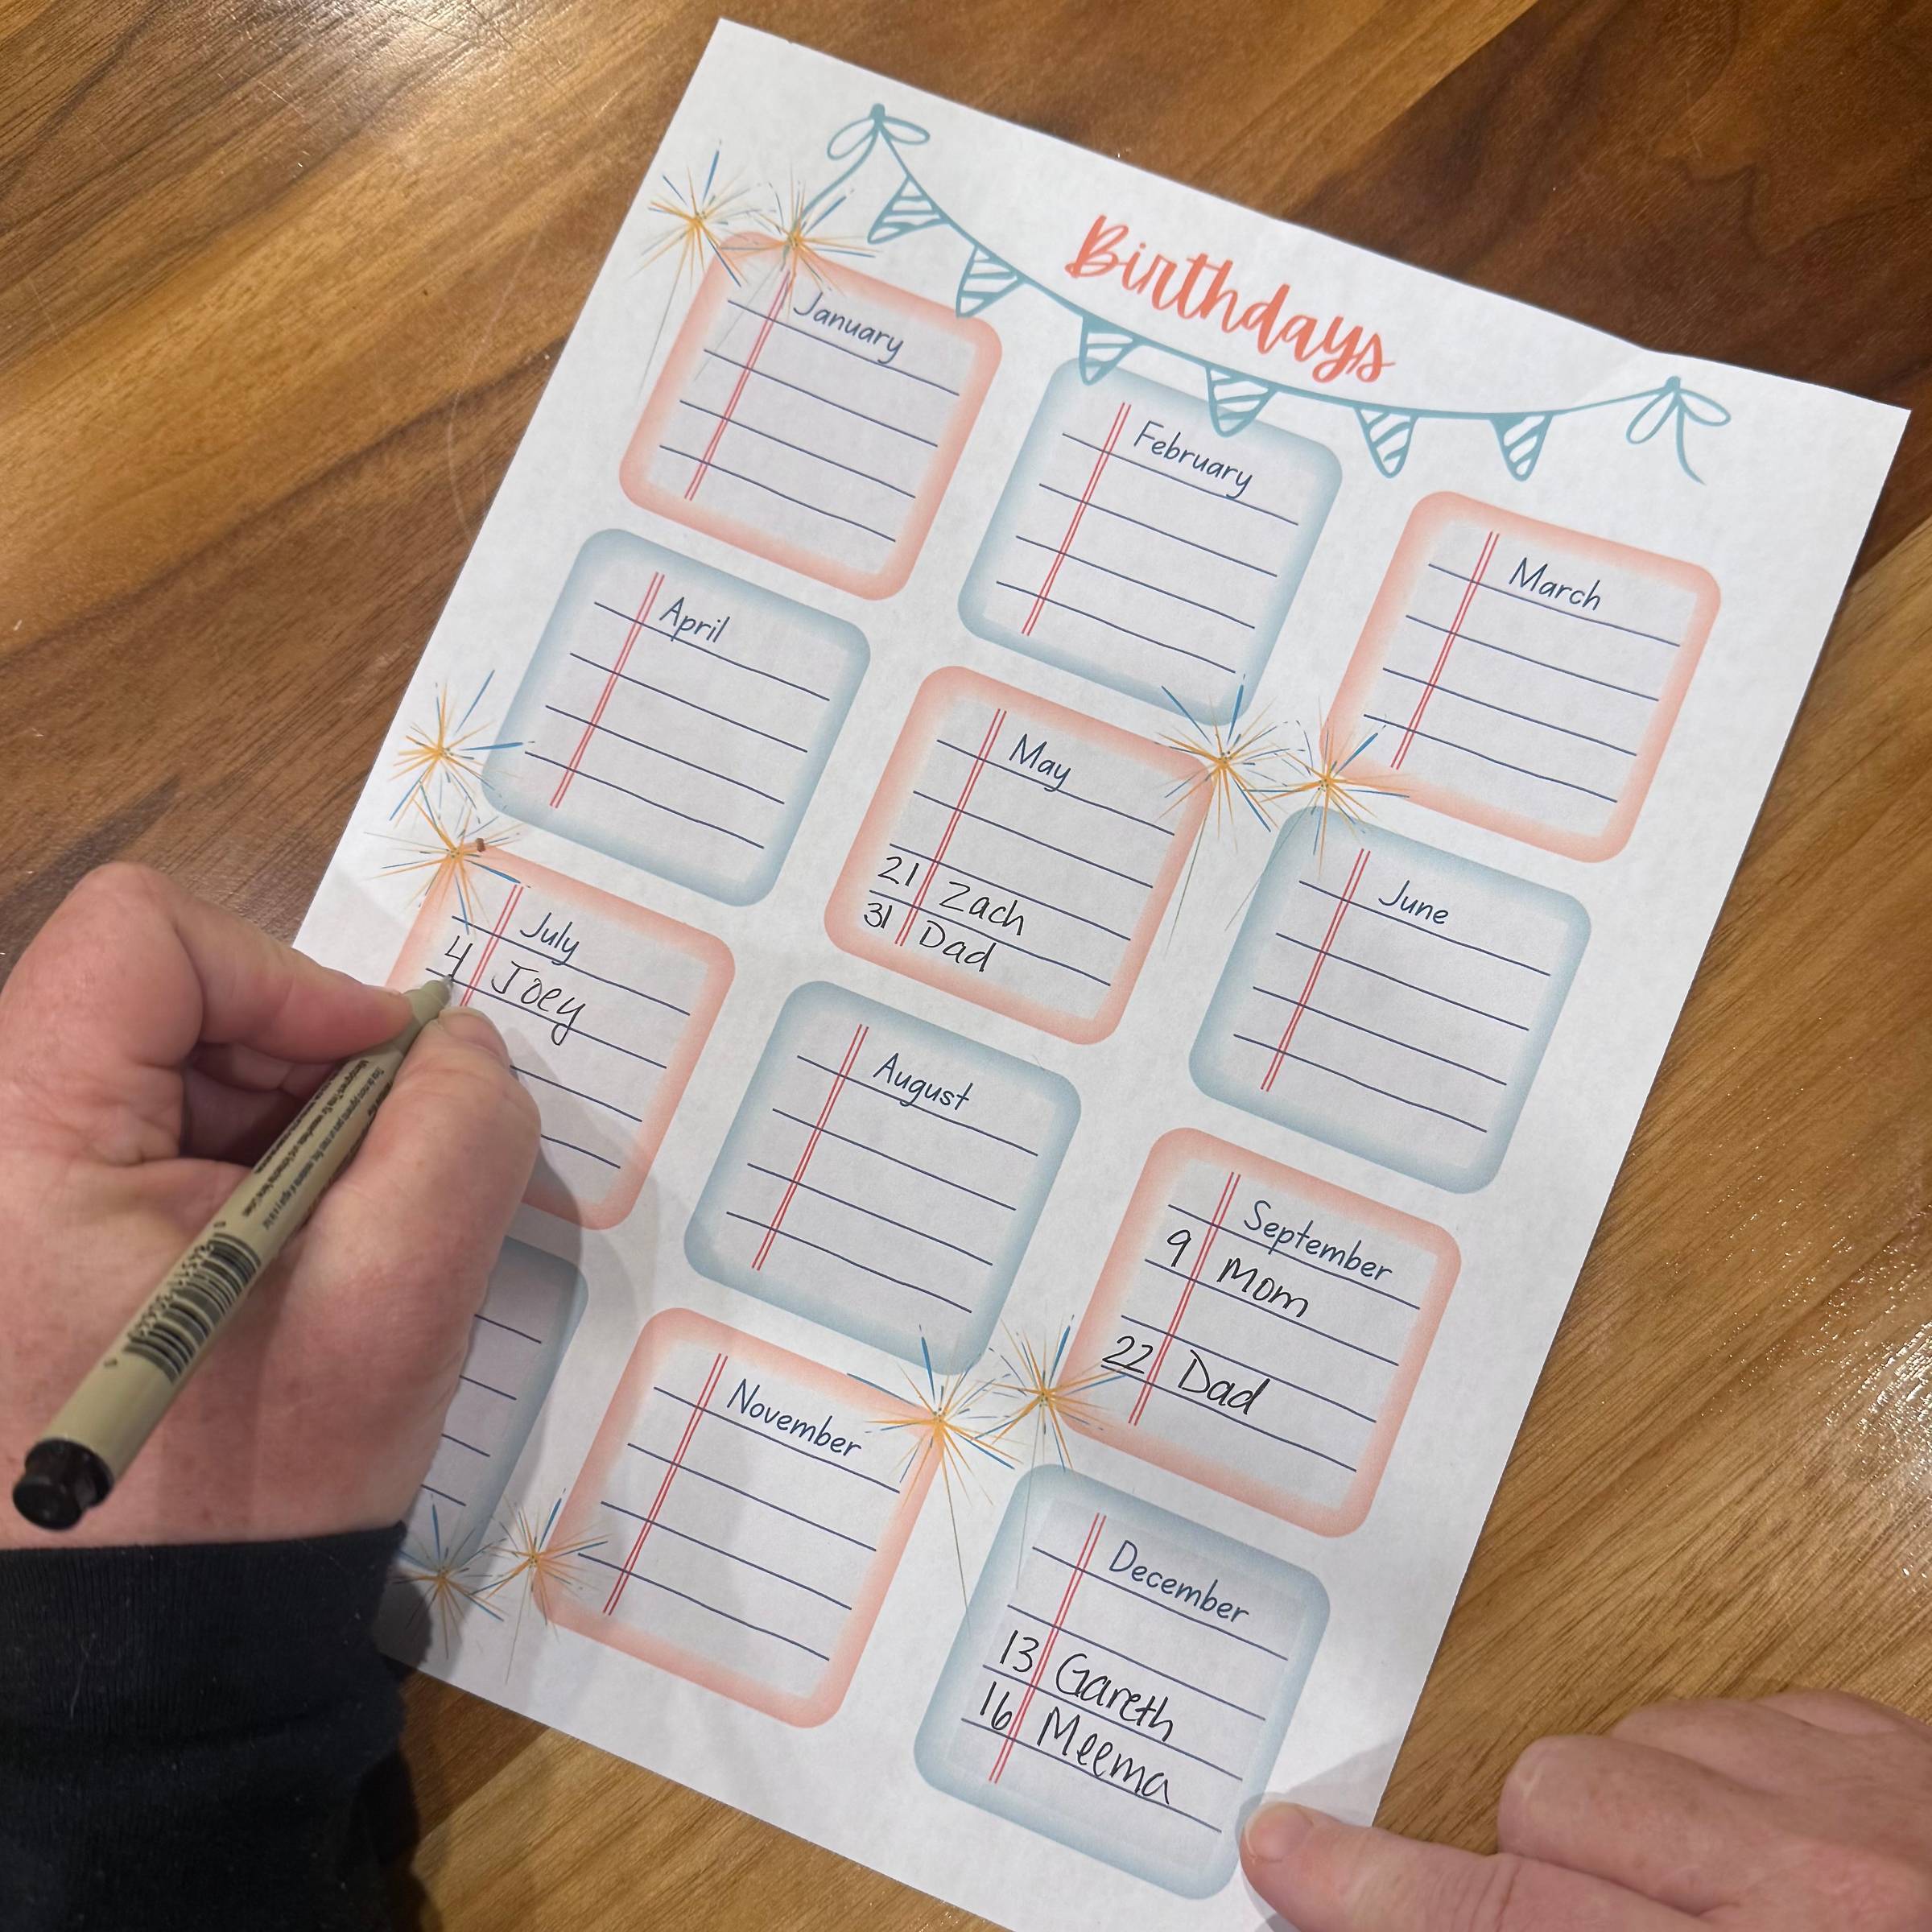 Birthdays
January
February
March
April
May
21 Zach
31 Dad
June
July
4 Joey
August
September
9 Mom
22 Dad
November
December
13 Gareth
16 Meema